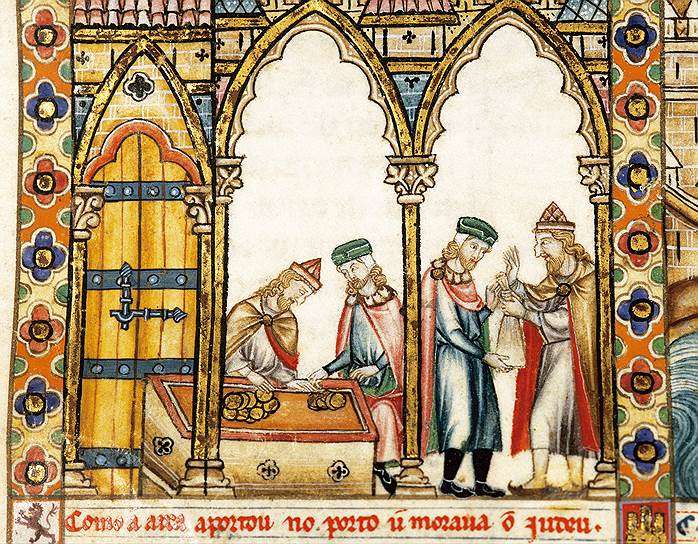 Como a arca aportou no. porto ũ moraua õ iudeu.